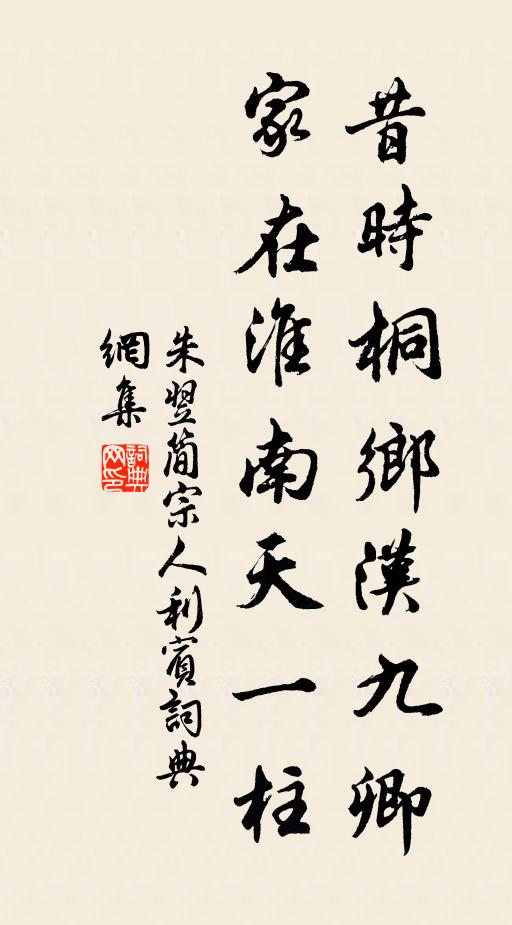 昔時桐鄉漢九卿
家在淮南天一柱
朱翌簡宗人利賓詞典
網集
詞典網印